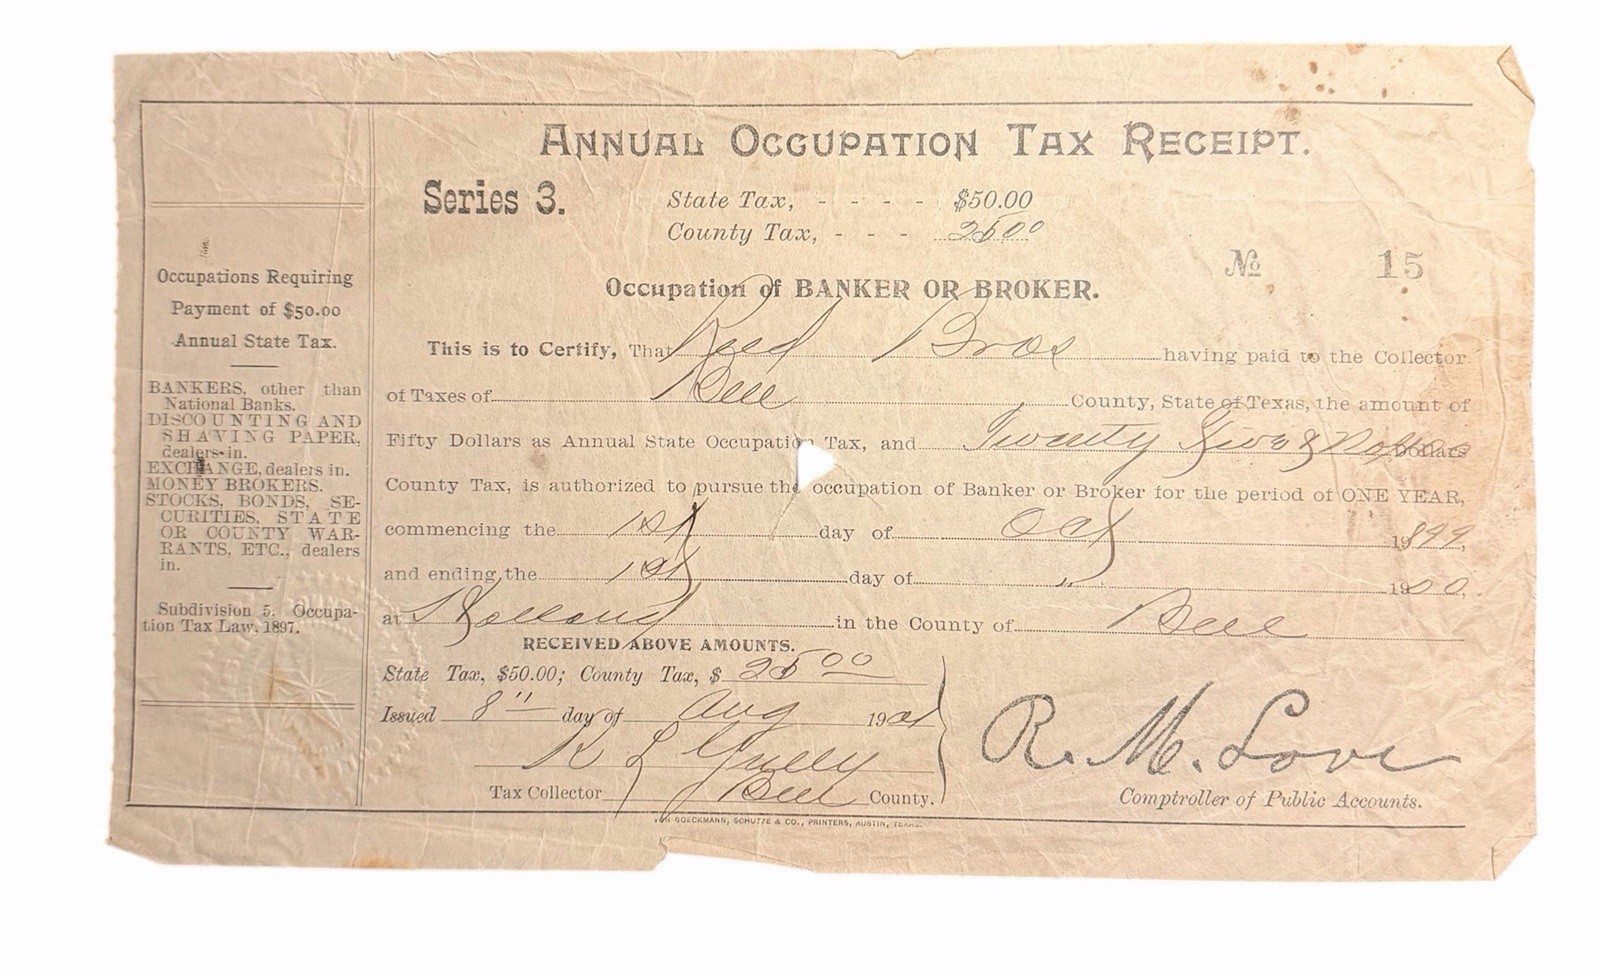 ANNUAL OCCUPATION TAX RECEIPT.
Series 3.
State Tax, - - - - $50.00
County Tax, - - - 25.00
No 15
Occupation of BANKER OR BROKER.
This is to Certify, That Reed Bros having paid to the Collector
of Taxes of Bell County, State of Texas, the amount of
Fifty Dollars as Annual State Occupation Tax, and Twenty Five & No/100 Dollars
County Tax, is authorized to pursue the occupation of Banker or Broker for the period of ONE YEAR,
commencing the 1st day of Oct 1899,
and ending the 1st day of " 1900,
at Holland in the County of Bell
RECEIVED ABOVE AMOUNTS.
State Tax, $50.00; County Tax, $ 25 00
Issued 8" day of Aug 1901
R L Gully
Tax Collector Bell County.
R. M. Love
Comptroller of Public Accounts.
VON BOECKMANN, SCHUTZE & CO., PRINTERS, AUSTIN, TEXAS.
Occupations Requiring
Payment of $50.00
Annual State Tax.
BANKERS, other than
National Banks.
DISCOUNTING AND
SHAVING PAPER,
dealers in.
EXCHANGE, dealers in.
MONEY BROKERS.
STOCKS, BONDS, SE-
CURITIES, STATE
OR COUNTY WAR-
RANTS, ETC., dealers
in.
Subdivision 5. Occupa-
tion Tax Law, 1897.